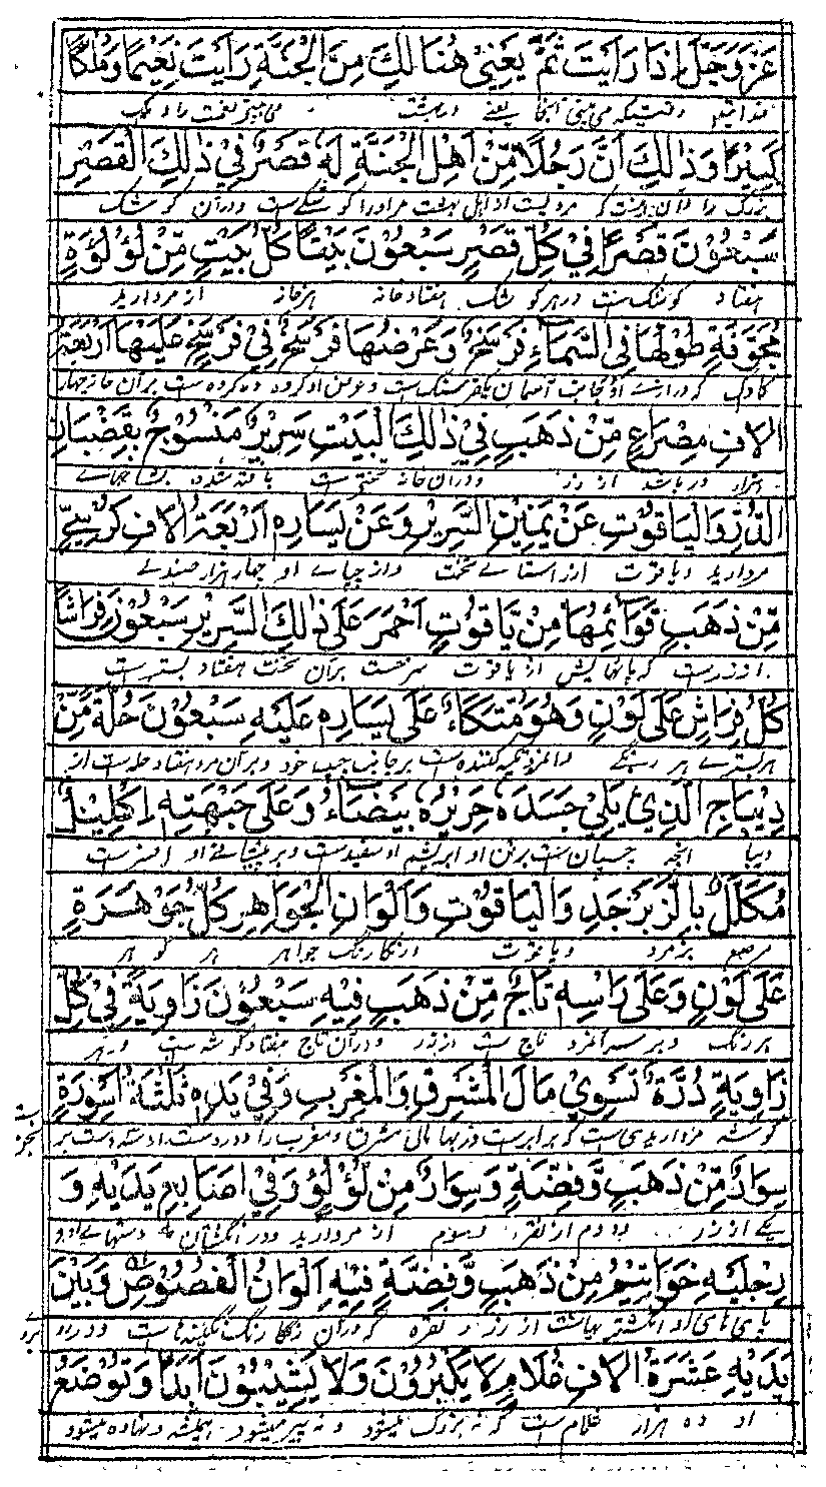 عَزَّوَجَلَّ اِذَا رَاَيْتَ ثَمَّ يَعْنِيْ هُنَالِكَ مِنَ الْجَنَّةِ رَاَيْتَ نَعِيْمًا وَّمُلْكًا
وقتیکه می بینی آنجا یعنے در بهشت می بینی نعمت را و ملک
كَبِيْرًا وَذٰلِكَ اَنَّ رَجُلًا مِّنْ اَهْلِ الْجَنَّةِ لَهٗ قَصْرٌ فِيْ ذٰلِكَ الْقَصْرِ
بزرگ را و آن مردیست از اهل بهشت مر اورا کوشکے است و در آن کوشک
سَبْعُوْنَ قَصْرًا فِيْ كُلِّ قَصْرٍ سَبْعُوْنَ بَيْتًا كُلُّ بَيْتٍ مِّنْ لُؤْلُؤَةٍ
هفتاد کوشک است و در هر کوشک هفتاد خانه هر خانه از مروارید
مُجَوَّفَةٍ طُوْلُهَا فِي السَّمَاءِ فَرْسَخٌ وَعَرْضُهَا فَرْسَخٌ فِيْ فَرْسَخٍ عَلَيْهَا اَرْبَعَةُ
کاواک که درازے او بجانب آسمان یکفرسنگ است و عرض او کروه در کروه است بر آن خانه چهار
اٰلَافِ مِصْرَاعٍ مِّنْ ذَهَبٍ فِيْ ذٰلِكَ الْبَيْتِ سَرِيْرٌ مَنْسُوْجٌ بِقَضْبَانِ
هزار در باشد از زر و در آن خانه تختے است بافته شده بشاخهاے
الدُّرِّ وَالْيَاقُوْتِ عَنْ يَمِيْنِ السَّرِيْرِ وَعَنْ يَسَارِهٖ اَرْبَعَةُ اٰلَافِ كُرْسِيٍّ
مروارید و یاقوت از راستاے تخت و از چپاے او چهار هزار صندلے
مِّنْ ذَهَبٍ قَوَائِمُهَا مِنْ يَاقُوْتٍ اَحْمَرَ عَلٰى ذٰلِكَ السَّرِيْرِ سَبْعُوْنَ فِرَاشًا
از زر است که پایهایش از یاقوت سرخست بر آن تخت هفتاد بستر است
كُلُّ فِرَاشٍ عَلٰى لَوْنٍ وَهُوَ مُتَّكَاءٌ عَلٰى يَسَارِهٖ عَلَيْهِ سَبْعُوْنَ حُلَّةً مِّنْ
هر بسترے بر رنگے و آنمرد تکیه کننده است بر جانب چپ خود و بر آن مرد هفتاد حله است از
دِيْبَاجٍ الَّذِيْ يَلِيْ جَسَدَهٗ حَرِيْرَةٌ بَيْضَاءُ وَعَلٰى جَبْهَتِهٖ اِكْلِيْلٌ
دیبا آنچه چسپان است بر تن او ابریشم سفیدست و بر پیشانے او افسر است
مُكَلَّلٌ بِالزَّبَرْجَدِ وَالْيَاقُوْتِ وَاَلْوَانِ الْجَوَاهِرِ كُلُّ جَوْهَرَةٍ
مرصع بزمرد و یاقوت و رنگارنگ جواهر هر گوهر
عَلٰى لَوْنٍ وَعَلٰى رَاْسِهٖ تَاجٌ مِّنْ ذَهَبٍ فِيْهِ سَبْعُوْنَ زَاوِيَةً فِيْ كُلِّ
بر رنگ و بر سر آنمرد تاج است از زر و در آن تاج هفتاد گوشه است و در هر
زَاوِيَةٍ دُرَّةٌ تَسْوِيْ مَالَ الْمَشْرِقِ وَالْمَغْرِبِ وَفِيْ يَدِهٖ ثَلٰثَةُ اَسْوِرَةٍ
گوشه مرواریدیست که برابرست در بها مال مشرق و مغرب را و در دست او سه دست بر
سِوَارٌ مِّنْ ذَهَبٍ وَّفِضَّةٍ وَسِوَارٌ مِنْ لُؤْلُؤٍ وَفِيْ اَصَابِعِ يَدَيْهِ وَ
یکے از زر و دوم از نقره و سوم از مروارید و در انگشتان دستهاے او و
رِجْلَيْهِ خَوَاتِيْمُ مِنْ ذَهَبٍ وَّفِضَّةٍ فِيْهِ اَلْوَانُ الْفُصُوْصِ وَبَيْنَ
پای های او انگشتریهاست از زر و نقره که در آن رنگا رنگ نگینهاست و در
يَدَيْهِ عَشَرَةُ اٰلَافِ غُلَامٍ لَا يَكْبُرُوْنَ وَلَا يَشِيْبُوْنَ اَبَدًا وَتُوْضَعُ
او ده هزار غلام است که نه بزرگ میشود و نه پیر میشود همیشه و نهاده میشود